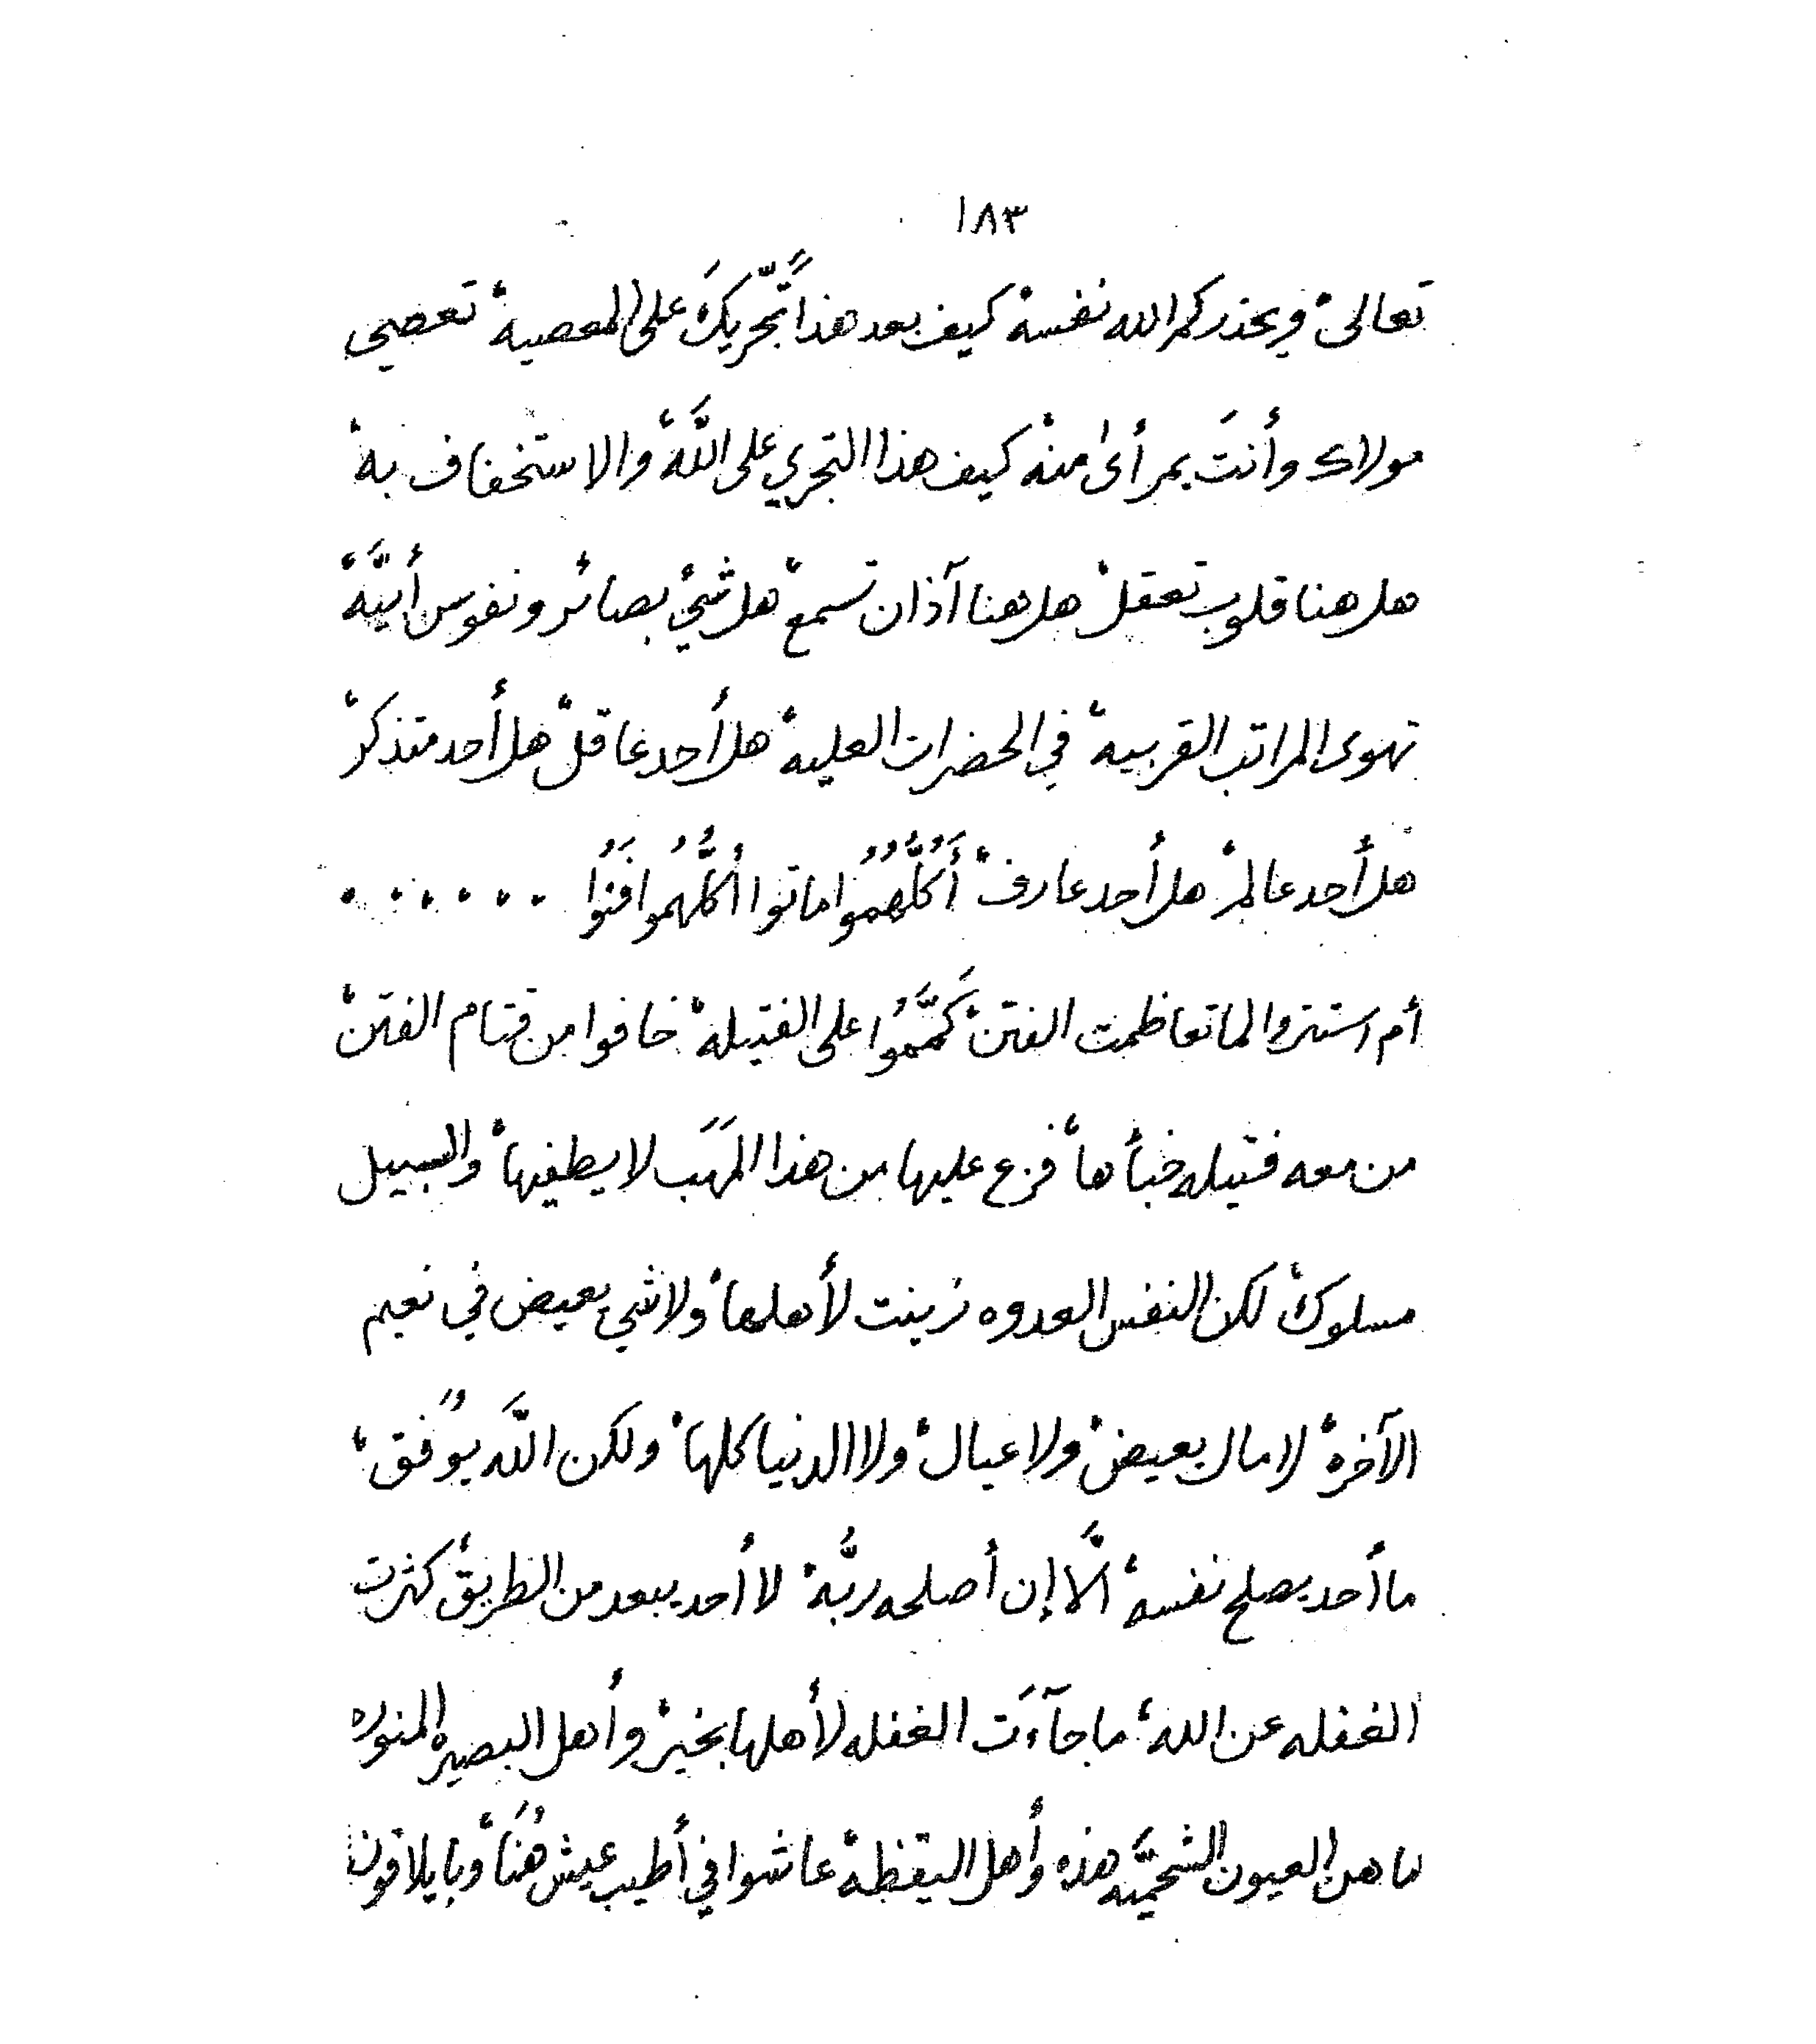 ١٨٣
تعالى، ويحذركم الله نفسه، كيف بعد هذا تجّريكَ على المعصية، تعصي
مولاك وأنتَ بمرأىٰ منه، كيف هذا التجري على اللَّه، والاستخفاف به،
هل هنا قلوب تعقل، هل هنا آذان تسمع، هل شيْ بصائر ونفوس أبيَّه،
تهوى المراتب القربيه، في الحضرات العليه، هل أحد عاقل، هل أحد متذكر،
هل أحد عالم، هل أحد عارف، أَكُلُّهُمُوا ماتوا أكلُّهُموا فَنُوا ......
أم استتروا لما تعاظمت الفتن، كَمَّمُوا على الفتيله، خافوا من قتام الفتن،
من معه فتيله خبأها، فزع عليها من هذا المَهَب لا يطفيها، والسبيل
مسلوك، لكن النفس العدوه زينت لأهلها، ولا شي بعيض في نعيم
الآخره، لا مال بعيض، ولا عيال، ولا الدنيا كلها، ولكن اللَّه يوفق،
ما أحد يصلح نفسه، الَّا إن أصلحه ربُّه، لا أحد يبعد من الطريق، كثرت
الغفله عن الله، ما جآءَت الغفله لأهلها بخير، وأهل البصيره المنوره
ما هن العيون الشحميَّه هذه، وأهل اليقظة، عاشوا في أطيب عيش هُنَا، وبايلاقون